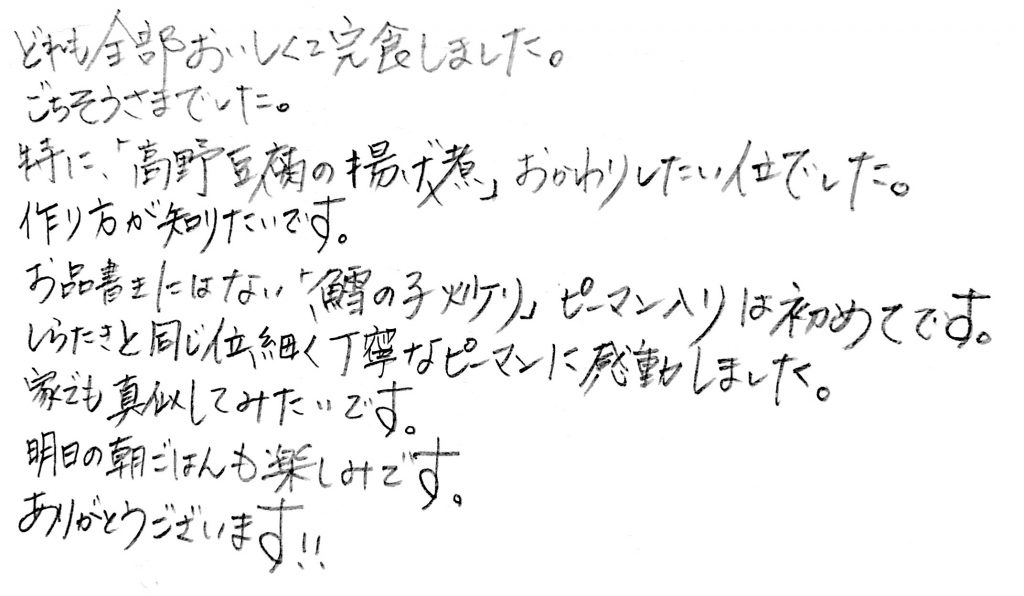 どれも全部おいしくて完食しました。
ごちそうさまでした。
特に、「高野豆腐の揚げ煮」おかわりしたい位でした。
作り方が知りたいです。
お品書きにはない「鱈の子炒り」ピーマン入りは初めてです。
しらたきと同じ位、細く丁寧なピーマンに感動しました。
家でも真似してみたいです。
明日の朝ごはんも楽しみです。
ありがとうございます!!